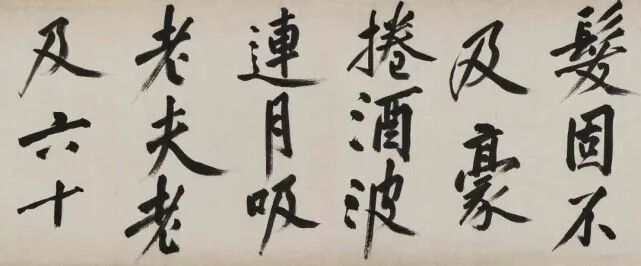 髮固不
及豪
捲酒波
連月吸
老夫老
及六十